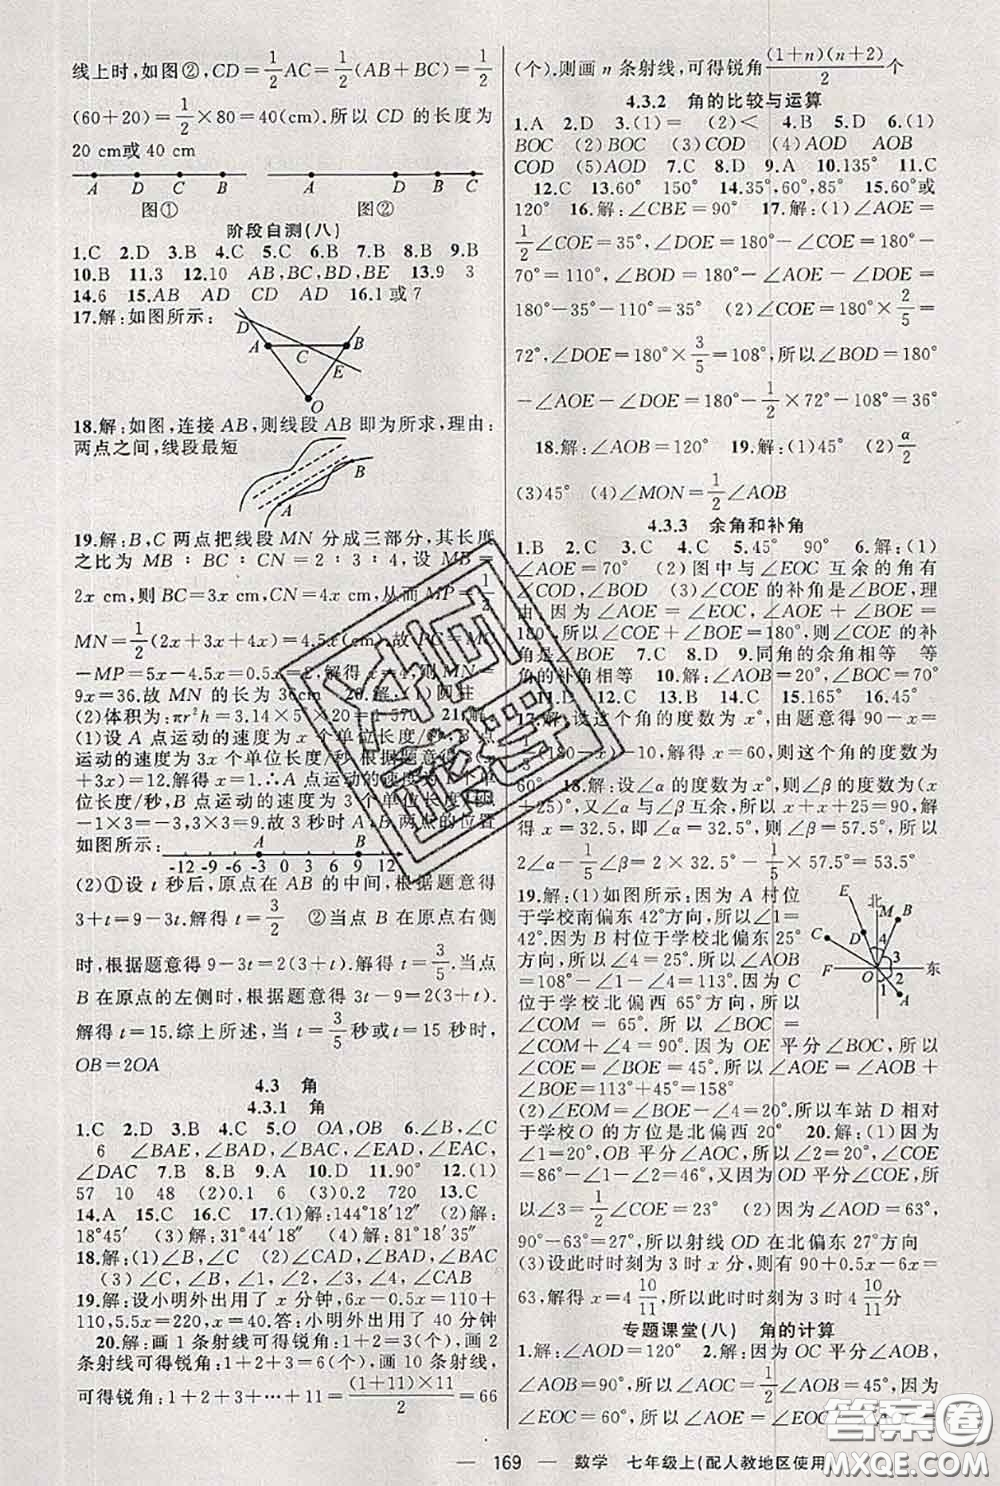 线上时,如图②,CD=1/2AC=1/2(AB+BC)=1/2
(60+20)=1/2×80=40(cm).所以 CD 的长度为
20 cm或 40 cm
A D C B A D B C
图① 图②
阶段自测(八)
1.C 2.D 3.B 4.C 5.C 6.B 7.B 8.B 9.B
10.B 11.3 12.10 AB,BC,BD,BE 13.9 3
14.6 15.AB AD CD AD 16.1 或 7
17.解:如图所示:
D A C B E O
18.解:如图,连接 AB,则线段 AB 即为所求,理由:
两点之间,线段最短
A B
19.解:B,C 两点把线段 MN 分成三部分,其长度
之比为 MB∶BC∶CN=2∶3∶4,设 MB=
2x cm,则 BC=3x cm,CN=4x cm,从而 MP=1/2
MN=1/2(2x+3x+4x)=4.5x(cm),故 PC=MC
-MP=5x-4.5x=0.5x=2,解得 x=4,则 MN=
9x=36.故 MN 的长为 36cm 20.解:(1)圆柱
(2)体积为:πr²h=3.14×5²×20=1 570 21.解:
(1)设 A 点运动的速度为 x 个单位长度/秒,B 点
运动的速度为 3x 个单位长度/秒,根据题意得 3(x
+3x)=12.解得 x=1.∴A 点运动的速度为 1 个单
位长度/秒,B 点运动的速度为 3 个单位长度/秒
-1×3=-3,3×3=9.故 3 秒时 A,B 两点的位置
如图所示:
A B
-12 -9 -6 -3 0 3 6 9 12
(2)①设 t 秒后,原点在 AB 的中间,根据题意得
3+t=9-3t.解得 t=3/2 ②当点 B 在原点右侧
时,根据题意得 9-3t=2(3+t).解得 t=3/5.当点
B 在原点的左侧时,根据题意得 3t-9=2(3+t).
解得 t=15.综上所述,当 t=3/5秒或 t=15 秒时,
OB=2OA
4.3 角
4.3.1 角
1.C 2.D 3.B 4.C 5.O OA,OB 6.∠B,∠C
6 ∠BAE,∠BAD,∠BAC,∠EAD,∠EAC,
∠DAC 7.B 8.B 9.D 10.D 11.90° 12.(1)
57 10 48 (2)0.1 6 (3)0.2 720 13.C
14.A 15.C 16.C 17.(1)解:144°18′12″ (2)解:
18°45′ (3)解:31°44′18″ (4)解:81°18′35″
18.解:(1)∠B,∠C (2)∠CAD,∠BAD,∠BAC
(3)∠C,∠B,∠1,∠2,∠CAB
19.解:设小明外出用了 x 分钟,6x-0.5x=110+
110,5.5x=220,x=40.答:小明外出用了 40 分钟
20.解:画 1 条射线可得锐角:1+2=3(个),画 2
条射线可得锐角:1+2+3=6(个),画 11 条射线,
可得锐角:1+2+3+⋯+11=(1+11)×11/2=66
(个),则画 n 条射线,可得锐角(1+n)(n+2)/2个
4.3.2 角的比较与运算
1.A 2.D 3.(1)= (2)< 4.B 5.D 6.(1)
BOC (2)BOC (3)COD (4)AOD AOB
COD (5)AOD 7.C 8.D 9.A 10.135° 11.C
12.C 13.60° 150° 14.35°,60°,85° 15.60°或
120° 16.解:∠CBE=90° 17.解:(1)∠AOE=
1/2∠COE=35°,∠DOE=180°-∠COE=180°-
70°=110°,∠BOD=180°-∠AOE-∠DOE=
180°-35°-110°=35° (2)∠COE=180°×2/5=
72°,∠DOE=180°×3/5=108°,所以∠BOD=180°
-∠AOE-∠DOE=180°-1/2×72°-108°=36°
18.解:∠AOB=120° 19.解:(1)45° (2)α/2
(3)45° (4)∠MON=1/2∠AOB
4.3.3 余角和补角
1.B 2.C 3.C 4.C 5.45° 90° 6.解:(1)
∠AOE=70° (2)图中与∠EOC 互余的角有
∠COD,∠BOD (3)∠COE的补角是∠BOE,理
由:因为∠AOE=∠EOC,∠AOE+∠BOE=
180°,所以∠COE+∠BOE=180°,则∠COE的补
角是∠BOE 7.C 8.D 9.同角的余角相等 等
角的补角相等 10.解:∠AOB=20°,∠BOC=70°
11.D 12.D 13.B 14.C 15.165° 16.45°
17.解:设这个角的度数为 x°,由题意得 90-x=
(180-x)-10,解得 x=60,则这个角的度数为
60° 18.解:设∠α的度数为x°,则∠β的度数为(x
+25)°,又∠α与∠β互余,所以 x+x+25=90,解
得 x=32.5,即∠α=32.5°,∠β=57.5°,所以
2∠α-1/5∠β=2×32.5°-1/5×57.5°=53.5°
19.解:(1)如图所示:因为 A 村位
于学校南偏东 42°方向,所以∠1=
42°.因为 B 村位于学校北偏东 25°
方向,所以∠4=25°.所以∠AOB
=108°-∠1-∠4=113°.因为 C
位于学校北偏西 65°方向,所以
∠COM=65°.所以∠BOC=
∠COM+∠4=90°.因为 OE 平分∠BOC,所以
∠COE=∠BOE=45°,所以∠AOE=∠AOB+
∠BOE=113°+45°=158°
E 北 M B C D 4 3 F O 2 东 1 A
(2)∠EOM=∠BOE-∠4=20°.所以车站 D 相对
于学校O的方位是北偏西 20° 20.解:(1)因为
∠1=20°,OB 平分∠AOC,所以∠2=20°,∠COE
=86°-∠1-∠2=46°,又因为 OD 平分∠COE,所
以∠3=1/2∠COE=23° (2)因为∠AOD=63°,
90°-63°=27°,所以射线 OD 在北偏东 27°方向
(3)设此时时刻为 3 时 x 分,则有 90+0.5x-6x=
63,解得 x=4 10/11,所以此时时刻为3时4 10/11分
专题课堂(八) 角的计算
1.解:∠AOD=120° 2.解:因为 OC 平分∠AOB,
∠AOB=90°,所以∠AOC=1/2∠AOB=45°,因为
∠EOC=60°,所以∠AOE=∠EOC-∠AOC=
— 169 — 数学 七年级上(配人教地区使用
答案圈
MXQE.COM